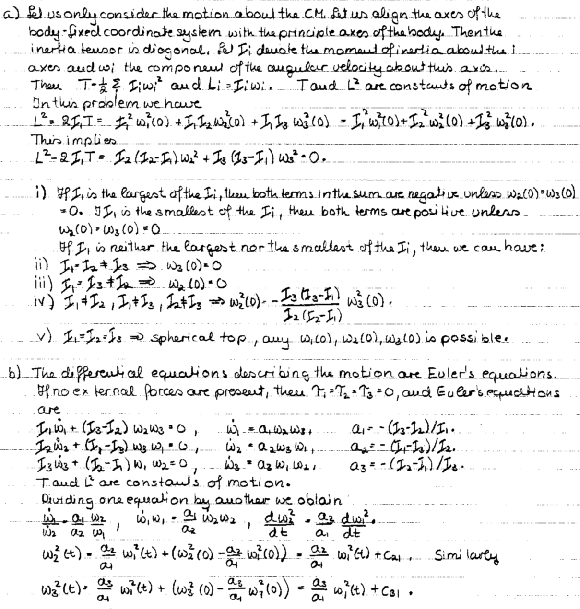 a) Let us only consider the motion about the CM. Let us align the axes of the
body-fixed coordinate system with the principle axes of the body. Then the
inertia tensor is diagonal. Let Iᵢ denote the moment of inertia about the i
axes and ωᵢ the component of the angular velocity about this axis.
Then T = ½ Σ Iᵢωᵢ² and Lᵢ = Iᵢωᵢ. T and L² are constants of motion
In this problem we have
L² = 2I₁T = I₁²ω₁²(0) + I₁I₂ω₂²(0) + I₁I₃ω₃²(0) = I₁²ω₁²(0) + I₂²ω₂²(0) + I₃²ω₃²(0).
This implies
L² - 2I₁T = I₂(I₂-I₁)ω₂² + I₃(I₃-I₁)ω₃² = 0.
i) If I₁ is the largest of the Iᵢ, then both terms in the sum are negative unless ω₂(0) = ω₃(0)
= 0. If I₁ is the smallest of the Iᵢ, then both terms are positive unless
ω₂(0) = ω₃(0) = 0
If I₁ is neither the largest nor the smallest of the Iᵢ, then we can have:
ii) I₁ = I₂ ≠ I₃ ⇒ ω₃(0) = 0
iii) I₁ = I₃ ≠ I₂ ⇒ ω₂(0) = 0
iv) I₁ ≠ I₂, I₁ ≠ I₃, I₂ ≠ I₃ ⇒ ω₂²(0) = - I₃(I₃-I₁) / I₂(I₂-I₁) ω₃²(0).
v) I₁ = I₂ = I₃ ⇒ spherical top, any ω₁(0), ω₂(0), ω₃(0) is possible.
b) The differential equations describing the motion are Euler's equations.
If no external forces are present, then τ₁ = τ₂ = τ₃ = 0, and Euler's equations
are
I₁ω̇₁ + (I₃-I₂)ω₂ω₃ = 0, ω̇₁ = a₁ω₂ω₃, a₁ = -(I₃-I₂)/I₁.
I₂ω̇₂ + (I₁-I₃)ω₃ω₁ = 0, ω̇₂ = a₂ω₃ω₁, a₂ = -(I₁-I₃)/I₂.
I₃ω̇₃ + (I₂-I₁)ω₁ω₂ = 0, ω̇₃ = a₃ω₁ω₂, a₃ = -(I₂-I₁)/I₃.
T and L² are constants of motion.
Dividing one equation by another we obtain
ω̇₁/ω̇₂ = a₁/a₂ ω₂/ω₁, ω̇₁ω₁ = a₁/a₂ ω̇₂ω₂, dω₂²/dt = a₂/a₁ dω₁²/dt.
ω₂²(t) = a₂/a₁ ω₁²(t) + (ω₂²(0) - a₂/a₁ ω₁²(0)) = a₂/a₁ ω₁²(t) + c₂₁. Similarly
ω₃²(t) = a₃/a₁ ω₁²(t) + (ω₃²(0) - a₃/a₁ ω₁²(0)) = a₃/a₁ ω₁²(t) + c₃₁.